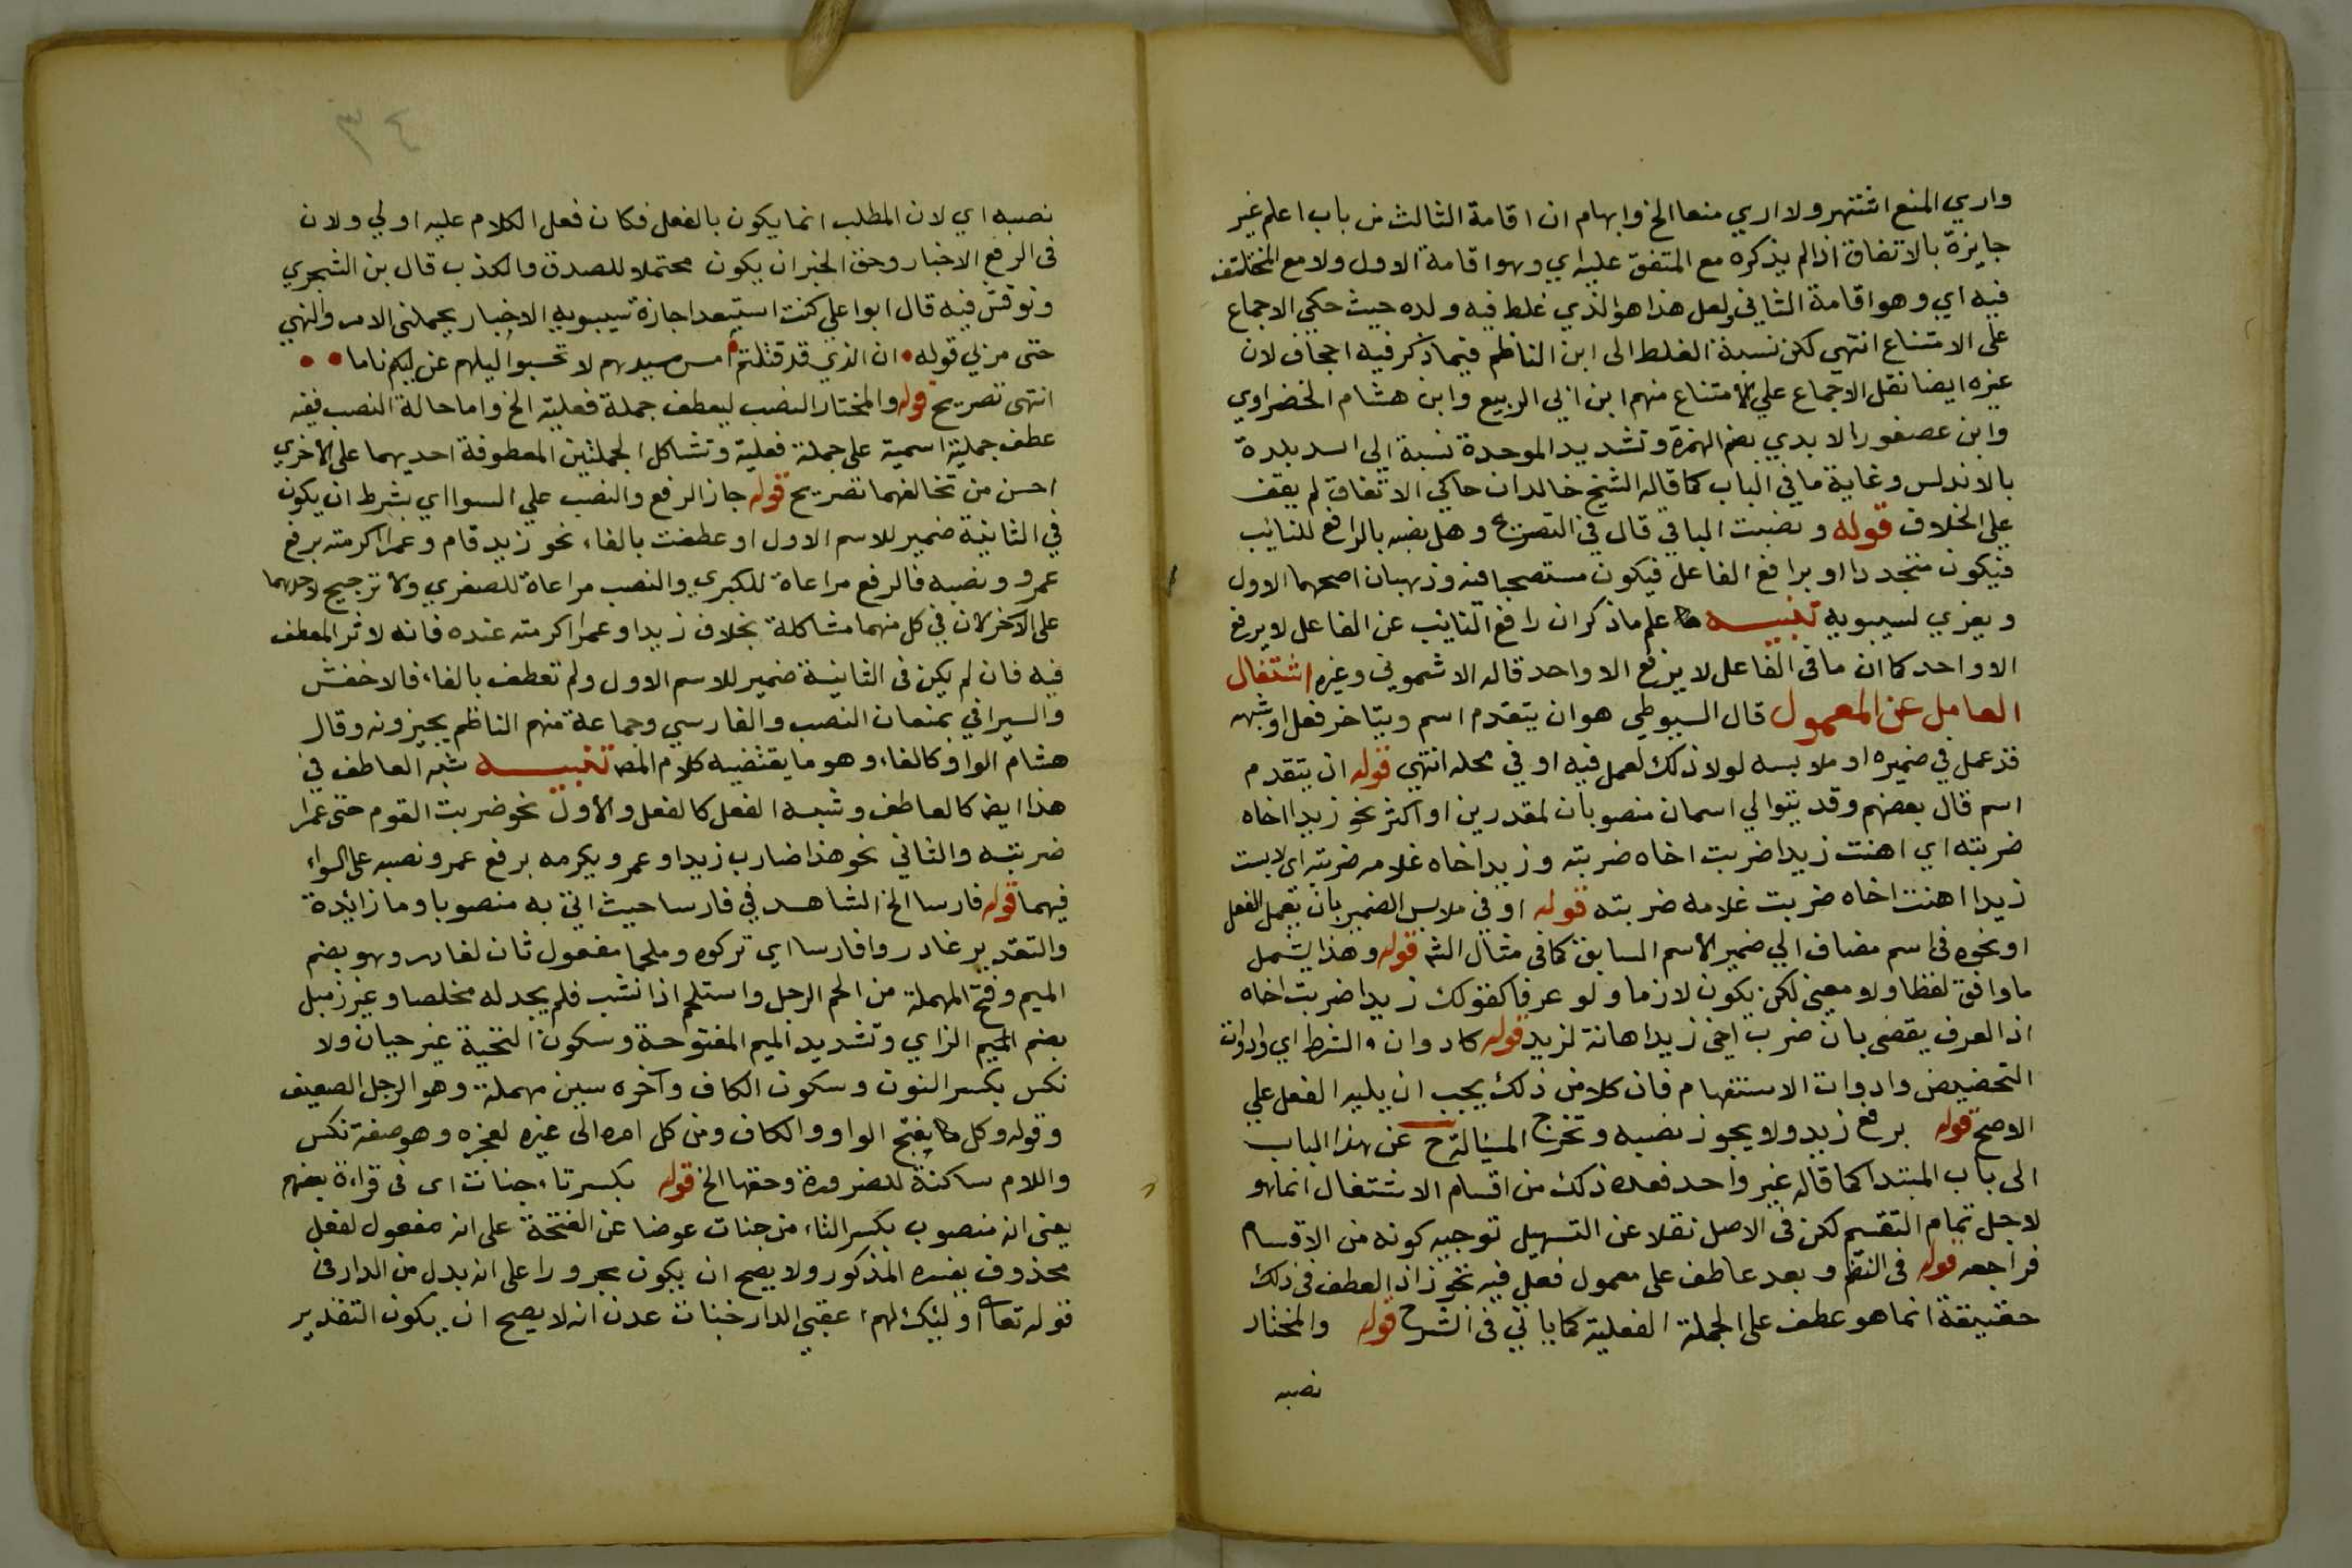 واري المنع اشتهر ولا اري منعا الخ وابهام ان اقامة الثالث من باب اعلم غير
جايزة بالاتفاق اذ لم يذكره مع المتفق عليه اي وهو اقامة الاول ولا مع المختلف
فيه اي وهو اقامة الثاني ولعل هذا هو الذي غلط فيه ولده حيث حكي الاجماع
على الامتناع انتهي لكن نسبة الغلط الى ابن الناظم فيما ذكر فيه اجحاف لان
غيره ايضا نقل الاجماع علي الامتناع منهم ابن ابي الربيع وابن هشام الخضراوي
وابن عصفور الابدي بضم الهمزة وتشديد الموحدة نسبة الى ابد بلدة
بالاندلس وغاية ما في الباب كما قاله الشيخ خالد ان حاكي الاتفاق لم يقف
علي الخلاف قوله ونصبت الباقي قال في التصريح وهل نصبه بالرافع للنايب
فيكون متجددا او برافع الفاعل فيكون مستصحبا فيه مذهبان اصحهما الاول
ويعزي لسيبويه تنبيه علم ما ذكر ان رافع النايب عن الفاعل لا يرفع
الا واحد كما ان ما في الفاعل لا يرفع الا واحد قاله الاشموني وغيره اشتغال
العامل عن المعمول قال السيوطي هو ان يتقدم اسم ويتاخر فعل او شبهه
قد عمل في ضميره او ملابسه لولا ذلك لعمل فيه او في محله انتهي قوله ان يتقدم
اسم قال بعضهم وقد يتوالي اسمان منصوبان لمقدرين او اكثر نحو زيدا اخاه
ضربته اي اهنت زيدا ضربت اخاه ضربته وزيدا اخاه غلامه ضربته اي لابست
زيدا اهنت اخاه ضربت غلامه ضربته قوله او في ملابس الضمير بان يعمل الفعل
او نحوه في اسم مضاف الي ضمير الاسم السابق كما في مثال الشـ قوله وهذا يشمل
ما وافق لفظا ولا معني لكن يكون لازما ولو عرفا كقولك زيدا ضربت اخاه
اذ العرف يقضي بان ضرب اخي زيدا اهانة لزيد قوله كادوات الشرط اي وادوات
التحضيض وادوات الاستفهام فان كلا من ذلك يجب ان يليه الفعل علي
الاصح قوله برفع زيد ولا يجوز نصبه وتخرج المسالة ح عن هذا الباب
الى باب المبتدا كما قاله غير واحد فعده ذلك من اقسام الاشتغال انما هو
لاجل تمام التقسيم لكن في الاصل نقلا عن التسهيل توجيه كونه من الاقسام
فراجعه قوله في النظم وبعد عاطف على معمول فعل فيه تجوز اذ العطف في ذلك
حقيقة انما هو عطف على الجملة الفعلية كما ياتي في الشرح قوله والمختار
نصبه
٣٤
نصبه اي لان المطلب انما يكون بالفعل فكان فعل الكلام عليه اولي ولان
في الرفع الاخبار وحق الخبر ان يكون محتملا للصدق والكذب قال بن الشجري
ونوقش فيه قال ابوا علي كنت استبعد اجازة سيبويه الاخبار بجملتي الامر والنهي
حتى مر بي قوله • ان الذي قد قتلتم امس سيدهم لا تحسبوا ليلهم عن ليلكم ناما • •
انتهى تصريح قوله والمختار النصب ليعطف جملة فعلية الخ واما حالة النصب ففيه
عطف جملية اسمية على جملة فعلية وتشاكل الجملتين المعطوفة احديهما على الاخري
احسن من تخالفهما تصريح قوله جاز الرفع والنصب علي السوا اي بشرط ان يكون
في الثانية ضمير للاسم الاول او عطفت بالفاء نحو زيد قام وعمرا اكرمته برفع
عمرو ونصبه فالرفع مراعاة للكبري والنصب مراعاة للصغري ولا ترجيح لاحدهما
على الاخر لان في كل منهما مشاكلة بخلاف زيدا وعمرا اكرمته عنده فانه لا ثر للعطف
فيه فان لم يكن في الثانية ضمير للاسم الاول ولم تعطف بالفاء فالاخفش
والسيرافي يمنعان النصب والفارسي وجماعة منهم الناظم يجيزونه وقال
هشام الواو كالفاء وهو ما يقتضيه كلام المص تنبيه شبه العاطف في
هذا ايضا كالعاطف وشبه الفعل كالفعل والاول نحو ضربت القوم حتى عمرا
ضربته والثاني نحو هذا ضارب زيدا وعمرو يكرمه برفع عمرو ونصبه على السواء
فيهما قوله فارسا الخ الشاهد في فارسا حيث اتي به منصوبا وما زائدة
والتقدير غادروا فارسا اي تركوه وملحما مفعول ثان لغادر وهو بضم
الميم وفتح المهملة من الحم الرجل واستلحم اذا نشب فلم يجد له مخلصا وغير زميل
بضم الميم الزاي وتشديد الميم المفتوحة وسكون التحية غير جبان ولا
نكس بكسر النون وسكون الكاف وآخره سين مهملة وهو الرجل الضعيف
وقوله وكل بفتح الواو والكاف ومن كل امره الى غيره لعجزه وهو صفة نكس
واللام ساكنة للضرورة وحقها الخ قوله بكسر تاء جنات اى فى قراءة بعضهم
يعني انه منصوب بكسر التاء من جنات عوضا عن الفتحة على انه مفعول لفعل
محذوف يفسره المذكور ولا يصح ان يكون مجرورا على انه بدل من الدار في
قوله تعا اوليك لهم عقبي الدار جنات عدن انه لا يصح ان يكون التقدير